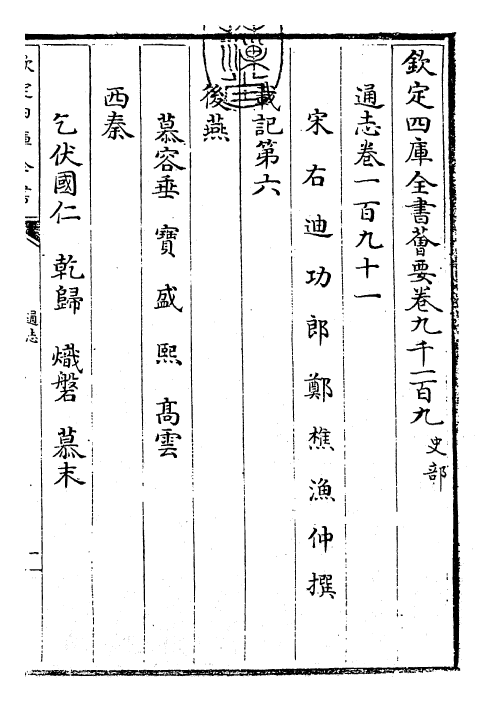 欽定四庫全書薈要卷九千一百九 史部
通志卷一百九十一
宋右迪功郎鄭樵漁仲撰
載記第六
後燕
慕容垂 寶 盛 熙 高雲
西秦
乞伏國仁 乾歸 熾磐 慕末
欽定四庫全書
通志